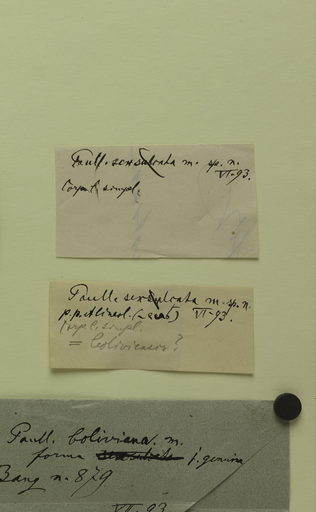 Paull. sexsulcata m. sp. n.
VI. 93.
Corp. simpl.
Paull. sexsulcata m. sp. n.
VI. 93.
Corp. simpl.
= boliviensis?
Paull. boliviana. m.
forma sexsulcata f. genuina
Bang n. 879
VII. 93